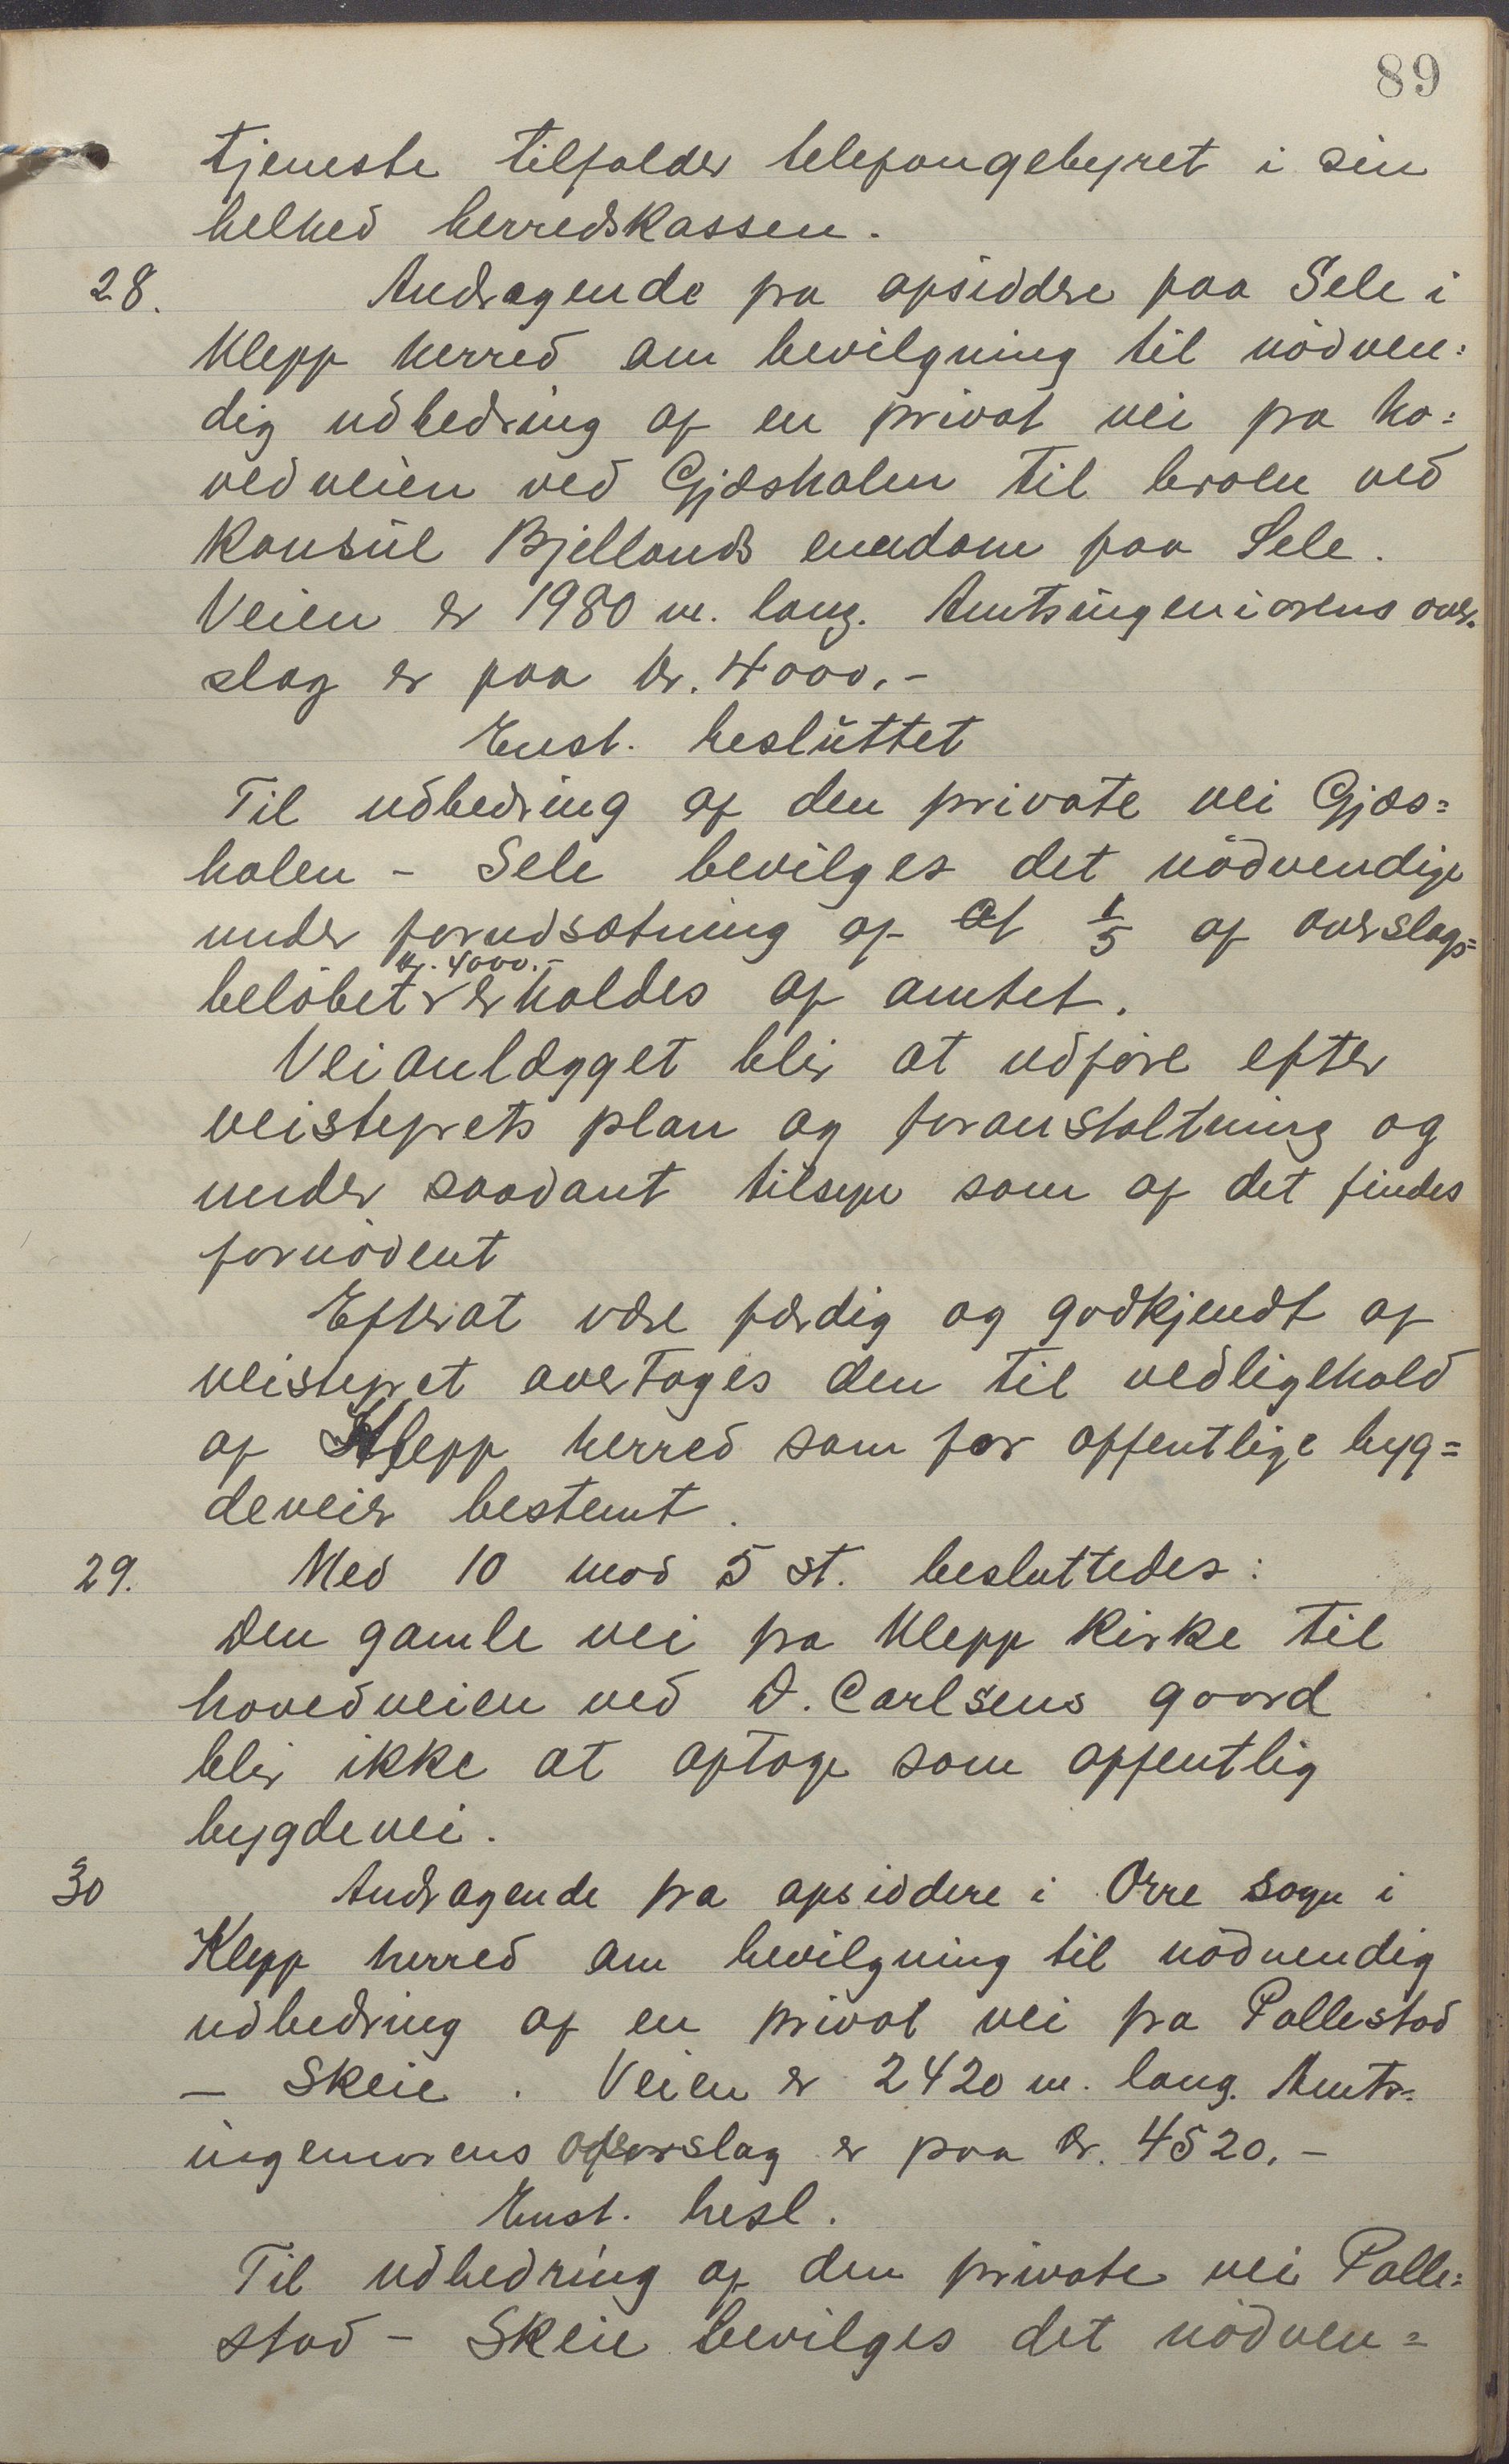 89
tjeneste tilfalder telefongebyret i sin
helhed herredskassen.
28. Andragende fra opsiddere paa Sele i
Klepp herred om bevilgning til nödven=
dig udbedring af en privat vei fra ho=
vedveien ved Gjæshalen til broen ved
Konsul Bjellands eiendom paa Sele.
Veien er 1980 m. lang. Amtsingeniørens over=
slag er paa kr. 4000.-
Enst. besluttet
Til udbedring af den private vei Gjæs=
halen - Sele bevilges det nödvendige
under forudsætning af at 1/5 af overslags=
kr. 4000.-
beløbet erholdes af amtet.
Veianlægget blir at udføre efter
veistyrets plan og foranstaltning og
under saadant tilsyn som af det findes
fornødent
Efterat være færdig og godkjendt af
veistyret overtages den til vedligehold
af Klepp herred som for offentlige byg=
deveier bestemt.
29. Med 10 mod 5 st. besluttedes:
Den gamle vei fra Klepp kirke til
hovedveien ved O. Carlsens gaard
blir ikke at optage som offentlig
bygdevei.
30 Andragende fra opsiddere i Orre sogn i
Klepp herred om bevilgning til nödvendig
udbedring af en privat vei fra Pollestad
- Skeie. Veien er 2420 m. lang. Amts=
ingeniørens overslag er paa kr. 4520.-
Enst. besl.
Til udbedring af den private vei Polle=
stad - Skeie bevilges det nödven=